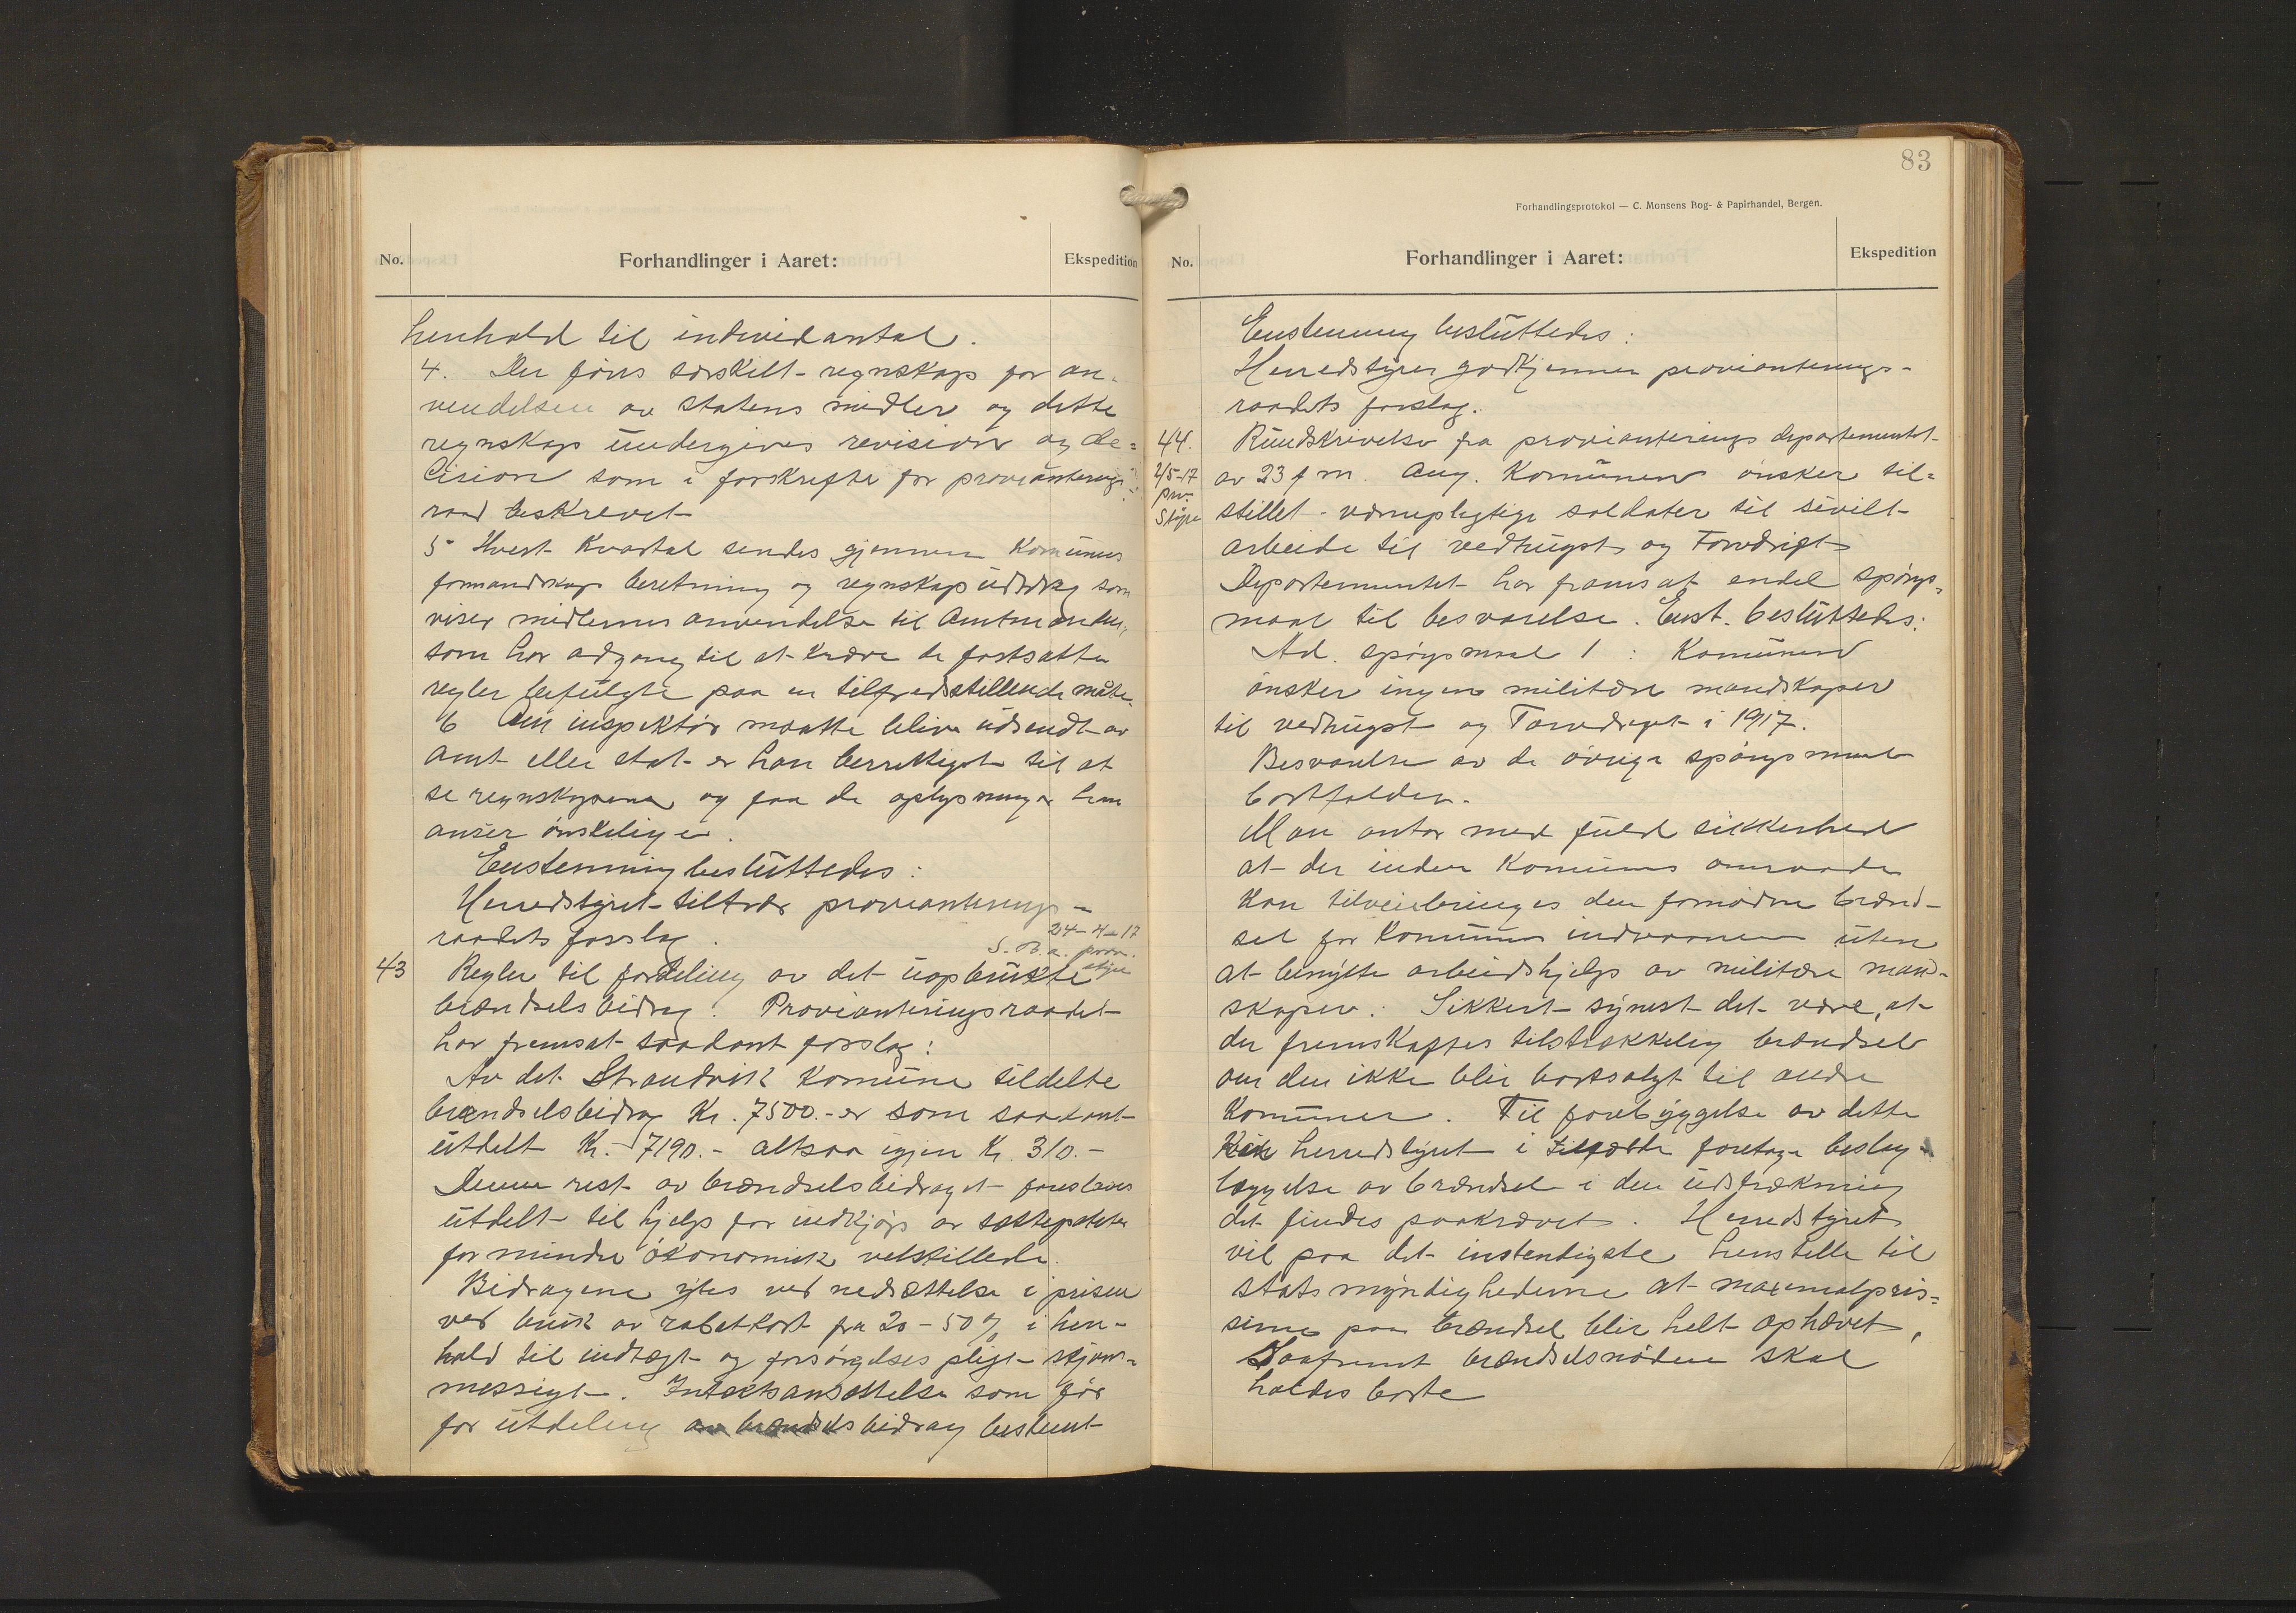 No.
Forhandlinger i Aaret:
Ekspedition
henhold til individantal.
4. Der føres særskilt regnskap for an-
vendelsen av statens midler og dette
regnskap undergives revision og de=
cision som i forskrifter for provianterings-
raad beskrevet
5 Hvert kvartal sendes gjennem komunens
formandskap beretning og regnskapsutdrag som
viser midlernes anvendelse til Amtmanden,
som har adgang til at kræve de fastsatte
regler befulgte paa en tilfredsstillende måte.
6 Om inspektør maatte blive utsendt av
Amt eller stat er han berettiget til at
se regnskaperne og faa de oplysninger han
anser ønskelige.
Enstemmig besluttedes:
Herredstyret tiltrær provianterings-
raadets forslag.
24-4-17
S. Ób. a. prov.
styre
43 Regler til fordeling av det uopbrukte
brændselsbidrag. Provianteringsraadet
har fremsat saadant forslag:
Av det Strandvik komune tildelte
brændselsbidrag Kr. 7500.- er som saadant
utdelt Kr. 7190.- altsaa igjen Kr. 310.-
Denne rest av brændselsbidraget foreslaaes
utdelt til hjelp for indkjøp av sættepoteter
for mindre økonomisk velstillede.
Bidragene ytes ved nedsættelse i prisen
ved bruk av rabatkort fra 20-50% i hen-
hold til indtægt og forsørgelsespligt skjøns-
messigt. Intektsansettelse som før
for utdeling av brændselsbidrag bestemt
83
Forhandlingsprotokol — C. Monsens Bog- & Papirhandel, Bergen.
No.
Forhandlinger i Aaret:
Ekspedition
Enstemmig besluttedes:
Herredstyret godkjenner provianterings-
raadets forslag.
44. Rundskrivelse fra provianterings departementet
2/5-17
prov.
Styre
av 23 f m. Ang. Komunen ønsker til=
stillet vernepligtige soldater til sivilt
arbeide til vedhugst og Torvdrift
Departementet har framsat endel spørgs-
maal til besvarelse. Enst. besluttedes:
Ad. spørgsmaal 1 : Komunen
ønsker ingen militære mandskaper
til vedhugst og Torvdrift i 1917.
Besvarelse av de øvrige spørgsmaal
bortfalder.
Man antar med fuld sikkerhed
at der inden komunens omraade
kan tilveiebringes den fornødne brænd-
sel for komunens indvaanere uten
at benytte arbeidshjelp av militære mand-
skaper. Sikkert synest det være, at
der fremskaffes tilstrækkelig brændsel
om den ikke blir bortsolgt til andre
komuner. Til forebyggelse av dette
kan herredstyret i tilfælde foretage beslag-
læggelse av brændsel i den utstrækning
det findes paakrævet. Herredstyret
vil paa det instendigste henstille til
statsmyndighederne at maximalpris-
serne paa brændsel blir helt ophævet,
Saafremt brændselsnøden skal
holdes borte